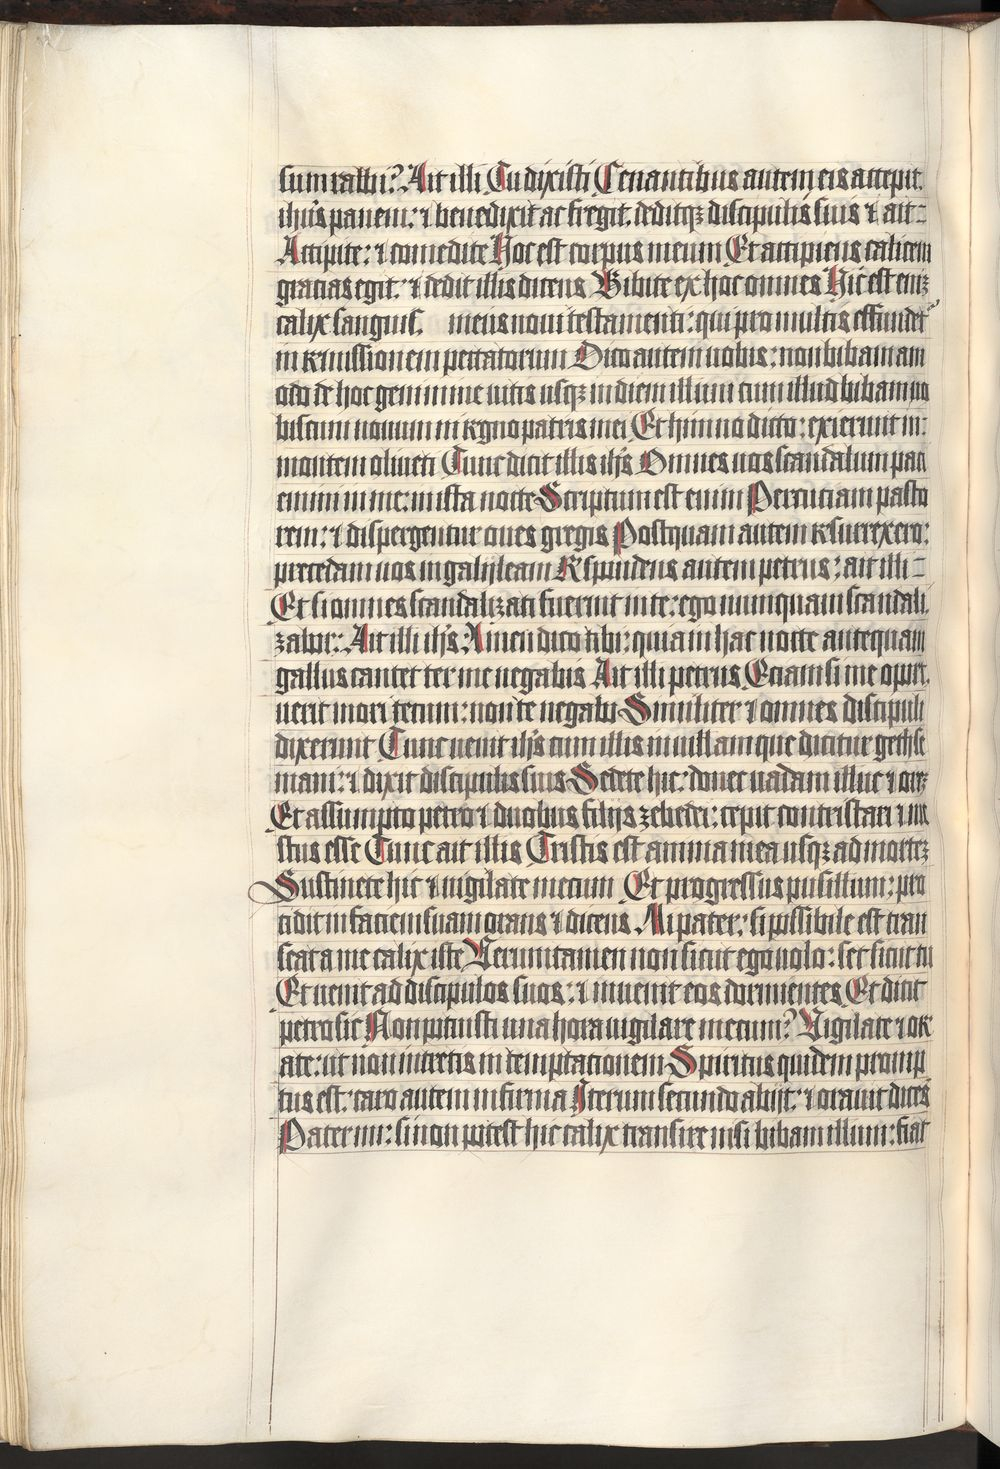 sum rabbi? Ait illi Tu dixisti Cenantibus autem eis accepit.
ihūs panem: ⁊ benedixit ac fregit. deditqꝫ discipulis suis ⁊ ait
Accipite: ⁊ comedite Hoc est corpus meum Et accipiens calicem
gracias egit: ⁊ dedit illis dicens Bibite ex hoc omnes Hic est eniꝫ
calix sanguis. meus noui testamenti: qui pro multis effundet᷑
in remissionem peccatorum Dico autem uobis: non bibam am
odo de hoc genimine uitis usqꝫ in diem illum cum illud bibam uo
biscum nouum in regno patris mei Et himno dicto: exierunt in:
montem oliueti Tunc dicit illis ihs̄ Omnes uos scandalum paci
emini in me: in ista nocte Scriptum est enim Percutiam pasto
rem: ⁊ dispergentur oues gregis Postquam autem resurrexero:
precedam uos in galijleam Respondens autem petrus: ait illi
Et si omnes scandalizati fuerint in te: ego nunquam scandali.
zabor: Ait illi ihs̄ Amen dico tibi: quia in hac nocte antequam
gallus cantet ter me negabis Ait illi petrus Eciam si me oport.
uerit mori tecum: non te negabo Similiter ⁊ omnes discipuli
dixerunt Tunc uenit ihs̄ cum illis in uillam que dicitur gethse
mani: ⁊ dixit discipulis suis Sedete hic: donec uadam illuc ⁊ oreꝫ
Et assumpto petro ⁊ duobus filijs zebedei: cepit contristari ⁊ me
stus esse Tunc ait illis Tristis est anima mea usqꝫ ad morteꝫ
Sustinete hic ⁊ uigilate mecum Et progressus pusillum: pro
cidit in faciem suam orans ⁊ dicens Mi pater: si possibile est tran
seat a me calix iste Verumtamen non sicut ego uolo: set sicut tu
Et uenit ad discipulos suos: ⁊ inuenit eos dormientes Et dicit
petro sic Non potuisti una hora uigilare mecum? Vigilate ⁊ or
ate: ut non intretis in temptacionem Spiritus quidem promp
tus est: caro autem infirma Iterum secundo abijt: ⁊ orauit dices
Pater mi: si non potest hic calix transire nisi bibam illum: fiat